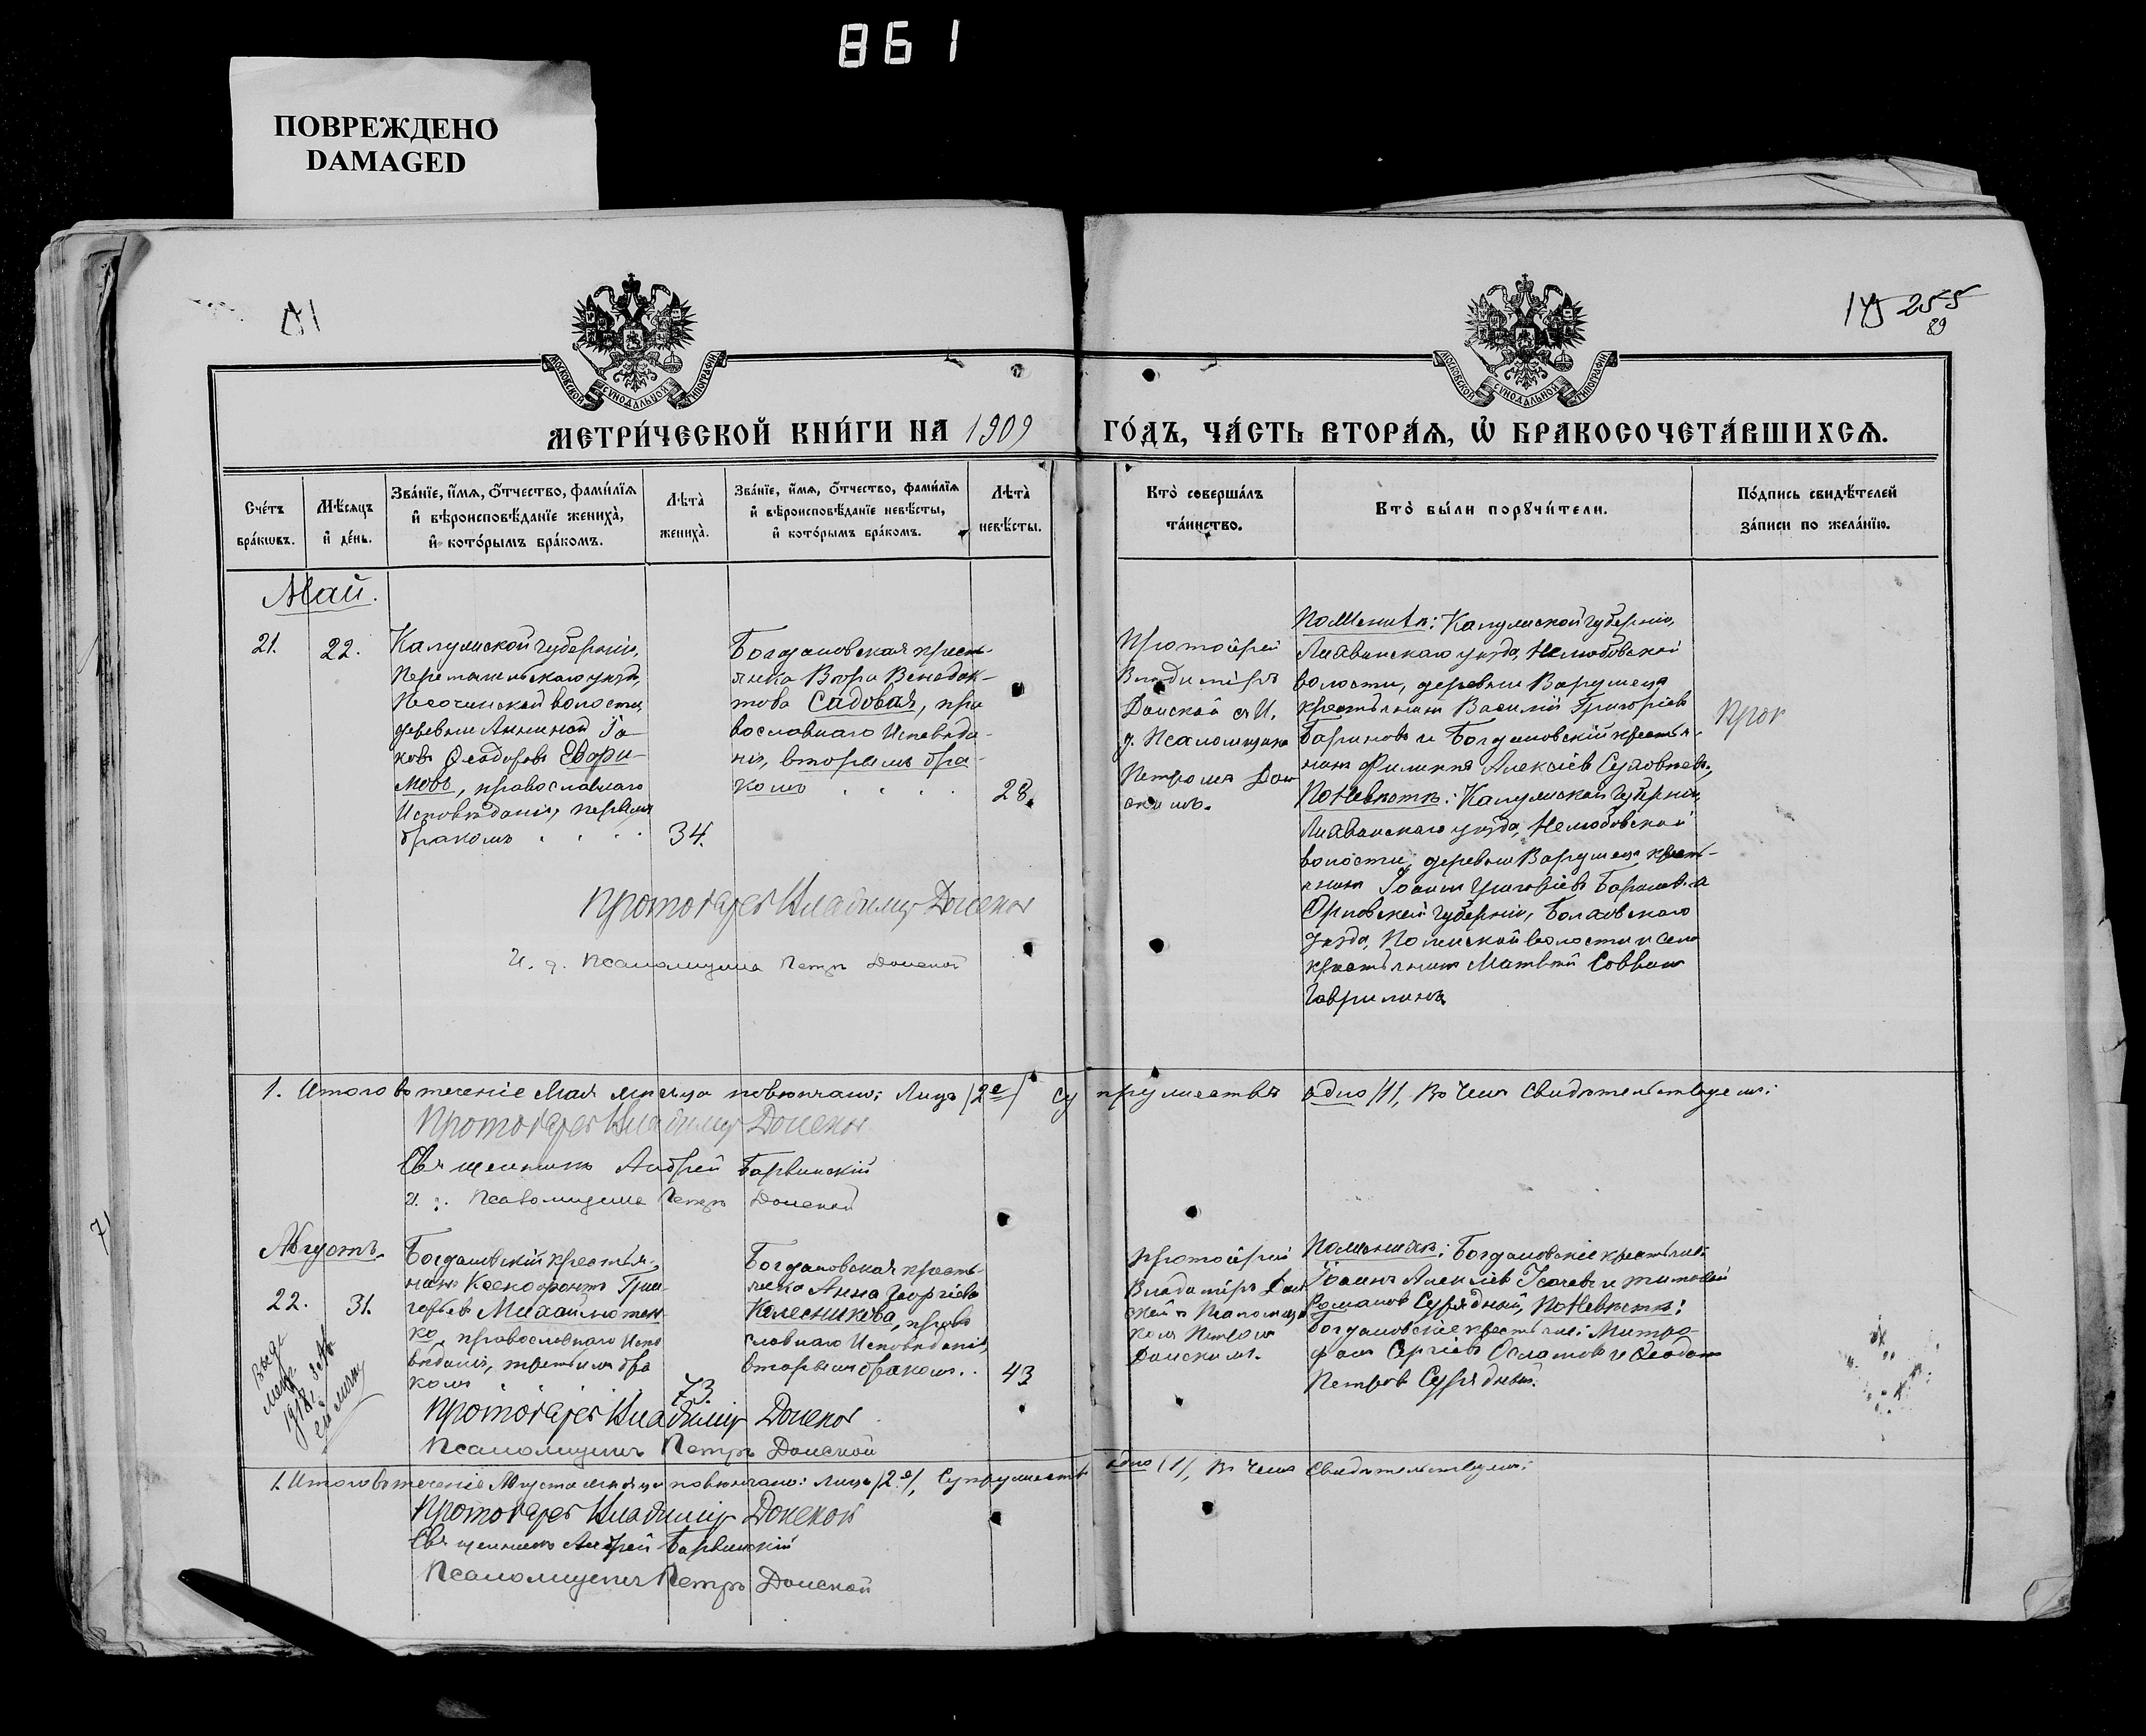 861
ПОВРЕЖДЕНО
DAMAGED
255
89
МОСКОВСКОЙ СѴНОДАЛЬНОЙ ТИПОГРАФІИ
МОСКОВСКОЙ СѴНОДАЛЬНОЙ ТИПОГРАФІИ
МЕТРИ́ЧЕСКОЙ КНИ́ГИ НА 1909 ГО́ДЪ, ЧА́СТЬ ВТОРА́Ѧ, Ѡ҆ БРАКОСОЧЕТА́ВШИХСѦ.
Сче́тъ бра́кѡвъ.
Мѣ́сѧцъ и҆ де́нь.
Зва́нїе, и҆́мѧ, ѻ҆́тчество, фами́лїѧ и҆ вѣроисповѣ́данїе жениха̀, и҆ кото́рымъ бра́комъ.
Лѣта̀ жениха̀.
Зва́нїе, и҆́мѧ, ѻ҆́тчество, фами́лїѧ и҆ вѣроисповѣ́данїе невѣ́сты, и҆ кото́рымъ бра́комъ.
Лѣта̀ невѣ́сты.
Кто̀ соверша́лъ та́инство.
Кто̀ бы́ли порꙋчи́тели.
По́дпись свидѣ́телей за́писи по жела́нїю.
Май.
21.
22.
Калужской губерніи,
Перемышльскаго уѣзда,
волости,
деревни Аниной Іа-
ковъ Ѳеодоровъ Евфи-
мовъ, православнаго
Исповѣданія, первымъ
бракомъ
34.
Богдановская кресть-
янка Венедик-
това Садовая, пра
вославнаго Исповѣда-
нія, вторымъ бра-
комъ
28.
Протоіерей
Владиміръ
Донской съ И.
д. Псаломщика
Петромъ Дон
скимъ.
По Женихѣ: Калужской губерніи,
уѣзда,
волости, деревни
крестьянинъ Василій Григоріевъ
Бариновъ и Богдановскій крестья-
нинъ Филиппъ Алексіевъ
По Невѣстѣ: Калужской Губерніи,
уѣзда,
волости, деревни кресть-
янинъ Іоаннъ Григоріевъ и
Орловской Губерніи, Болховскаго
уѣзда, волости и села
крестьянинъ Матвѣй
Гаврилинъ
Протоіерей Владиміръ Донской
И. д. Псаломщика Петръ Донской
1. Итого въ теченіе Мая мѣсяца повѣнчано: Лицъ /2е/ Супружество одно /1/, Въ Чемъ Свидѣтельствуемъ:
Протоіерей Владиміръ Донской
Священникъ Андрей Барвинскій
И. д. Псаломщика Петръ Донской
Августъ.
22.
31.
Богдановскій крестья-
нинъ Ксенофонтъ Григ
орьевъ Михайлютен-
ко, православнаго Испо
вѣданія, третьимъ бра
комъ
73.
Богдановская кресть-
янка Анна Георгіева
Колесникова, право
славнаго Исповѣданія,
вторымъ бракомъ.
43
Протоіерей
Владиміръ Дон
ской съ Псаломщи
комъ Петромъ
Донскимъ.
По Женихѣ: Богдановскіе крестьяне:
Іоаннъ Алексіевъ и Тимоѳей
Романовъ Сурядной, По Невѣстѣ:
Богдановскіе крестьяне: Митро-
фанъ Сергіевъ и Ѳеодотъ
Петровъ
Протоіерей Владиміръ Донской
Псаломщикъ Петръ Донской
1. Итого въ теченіе Августа мѣсяца повѣнчано: лицъ /2е/, Супружество одно /1/, Въ Чемъ Свидѣтельствуемъ:
Протоіерей Владиміръ Донской
Священникъ Андрей Барвинскій
Псаломщикъ Петръ Донской